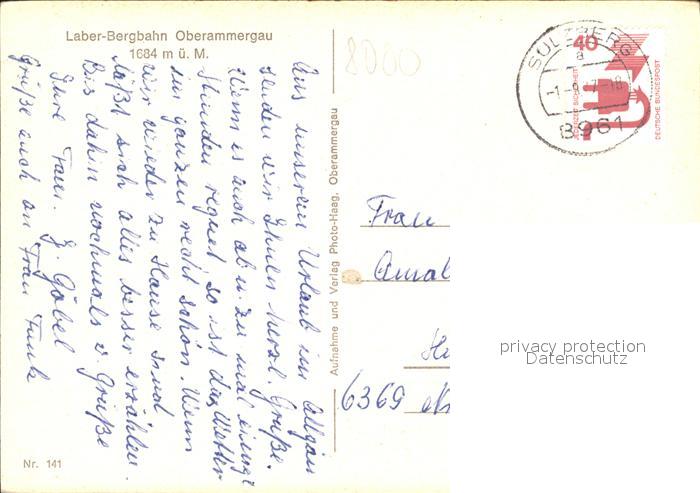 Laber-Bergbahn Oberammergau
1684 m ü. M.
Aus unserem Urlaub im Allgäu
senden wir Ihnen herzl. Grüße.
Wenn es auch ab u. zu mal einige
Stunden regnet so ist das Wetter
im ganzen recht schön. Wenn
wir wieder zu Hause sind
läßt sich alles besser erzählen.
Bis dahin nochmals v. Grüße
Ihre Fam. G. Göbel
Grüße auch an Frau Funk
Nr. 141
Aufnahme und Verlag Photo-Haag, Oberammergau
8000
SULZBERG
a
8961
40
JEDERZEIT SICHERHEIT
DEUTSCHE BUNDESPOST
Frau
Amal
6369
privacy protection
Datenschutz